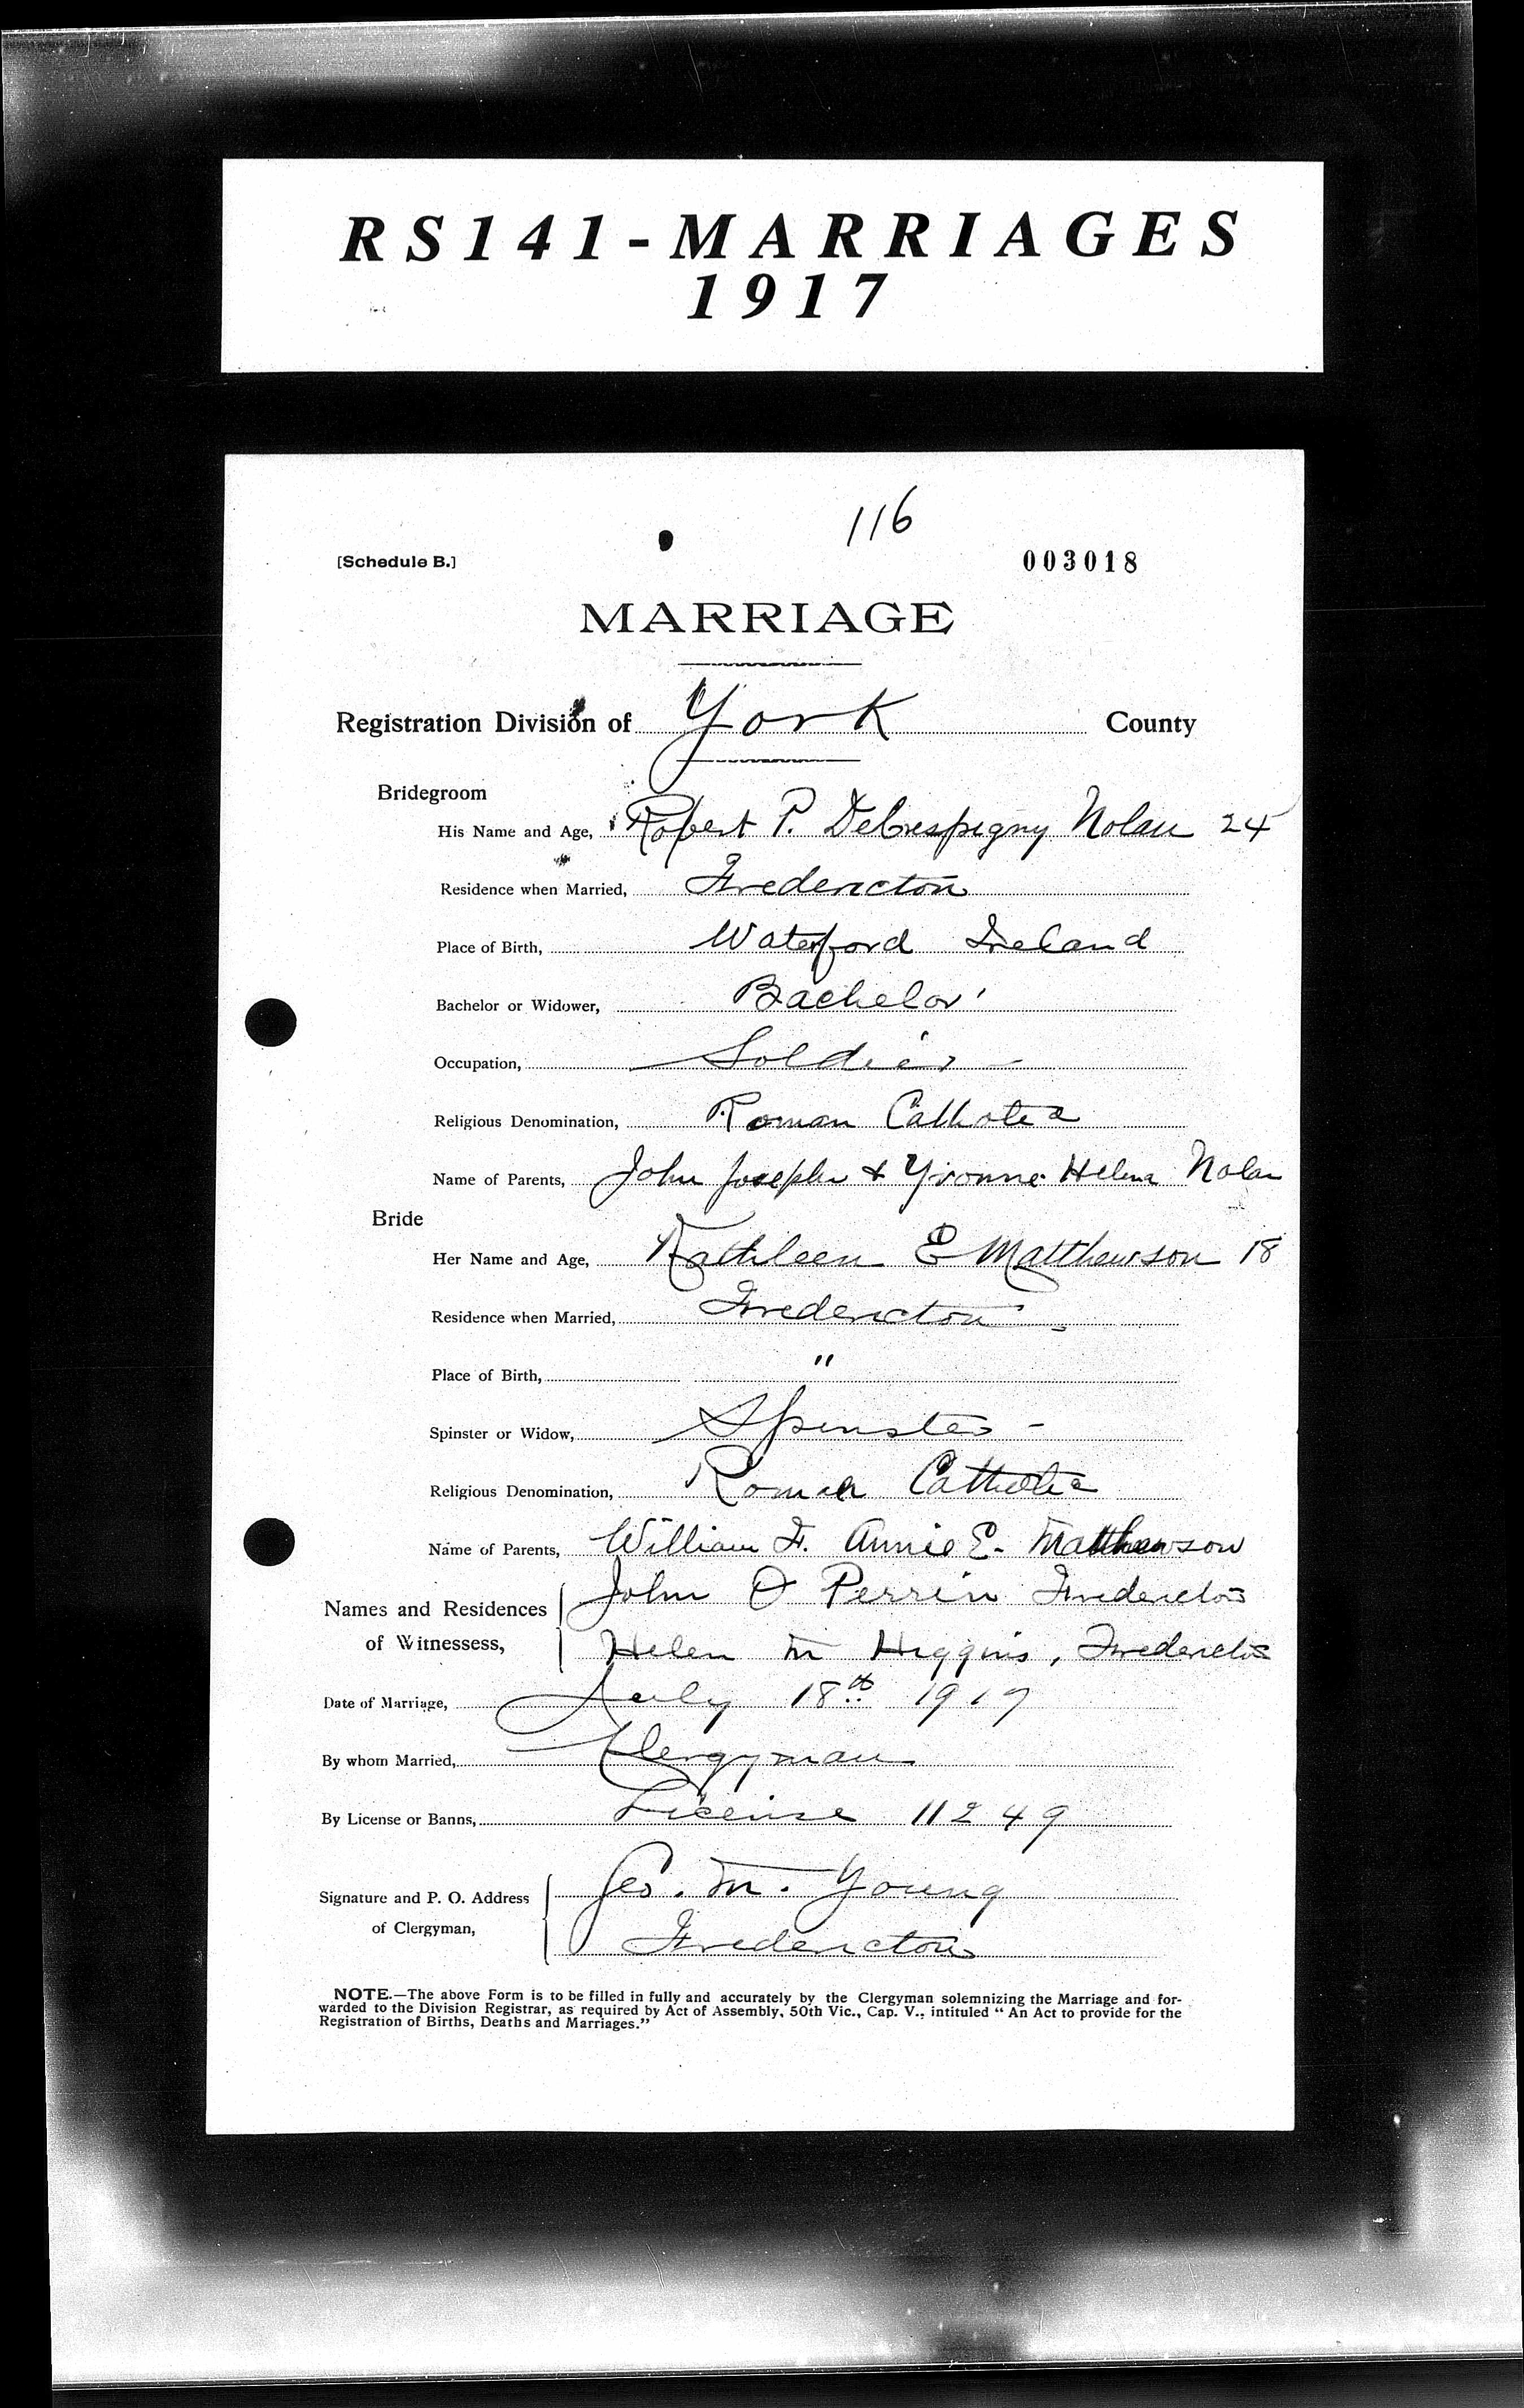 RS141-MARRIAGES
1917
116
[Schedule B.]
003018
MARRIAGE
Registration Division of York County
Bridegroom
His Name and Age, Robert P. DeCrespigny Nolan 24
Residence when Married, Fredericton
Place of Birth, Waterford Ireland
Bachelor or Widower, Bachelor
Occupation, Soldier
Religious Denomination, Roman Catholic
Name of Parents, John Joseph & Yvonne Helena Nolan
Bride
Her Name and Age, Kathleen E Matthewson 18
Residence when Married, Fredericton
Place of Birth, "
Spinster or Widow, Spinster
Religious Denomination, Roman Catholic
Name of Parents, William F. Annie E. Matthewson
Names and Residences John O Perrin Fredericton
of Witnessess, Helen M Higgins, Fredericton
Date of Marriage, July 18th 1917
By whom Married, Clergyman
By License or Banns, License 11249
Signature and P. O. Address Geo. M. Young
of Clergyman, Fredericton
NOTE.—The above Form is to be filled in fully and accurately by the Clergyman solemnizing the Marriage and for-
warded to the Division Registrar, as required by Act of Assembly, 50th Vic., Cap. V., intituled “ An Act to provide for the
Registration of Births, Deaths and Marriages.”